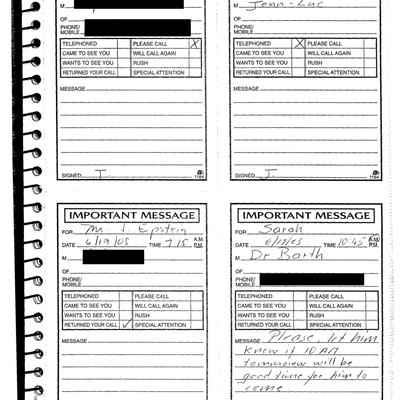 M
OF
PHONE/
MOBILE
TELEPHONED PLEASE CALL X
CAME TO SEE YOU WILL CALL AGAIN
WANTS TO SEE YOU RUSH
RETURNED YOUR CALL SPECIAL ATTENTION
MESSAGE
SIGNED J. 1184
M Jean-Luc
OF
PHONE/
MOBILE
TELEPHONED X PLEASE CALL
CAME TO SEE YOU WILL CALL AGAIN
WANTS TO SEE YOU RUSH
RETURNED YOUR CALL SPECIAL ATTENTION
MESSAGE
SIGNED J. 1184
IMPORTANT MESSAGE
FOR Mr. J. Epstein
DATE 6/19/05 TIME 7.15 A.M. P.M.
M
OF
PHONE/
MOBILE
TELEPHONED PLEASE CALL
CAME TO SEE YOU WILL CALL AGAIN
WANTS TO SEE YOU RUSH
RETURNED YOUR CALL ✓ SPECIAL ATTENTION
MESSAGE
IMPORTANT MESSAGE
FOR Sarah
DATE TIME 10:45 A.M. P.M.
M Dr Barth
OF
PHONE/
MOBILE
TELEPHONED PLEASE CALL
CAME TO SEE YOU WILL CALL AGAIN
WANTS TO SEE YOU RUSH
RETURNED YOUR CALL SPECIAL ATTENTION
MESSAGE Please, let him
know if 10 AM
tommorow will be
good time for him to
come.